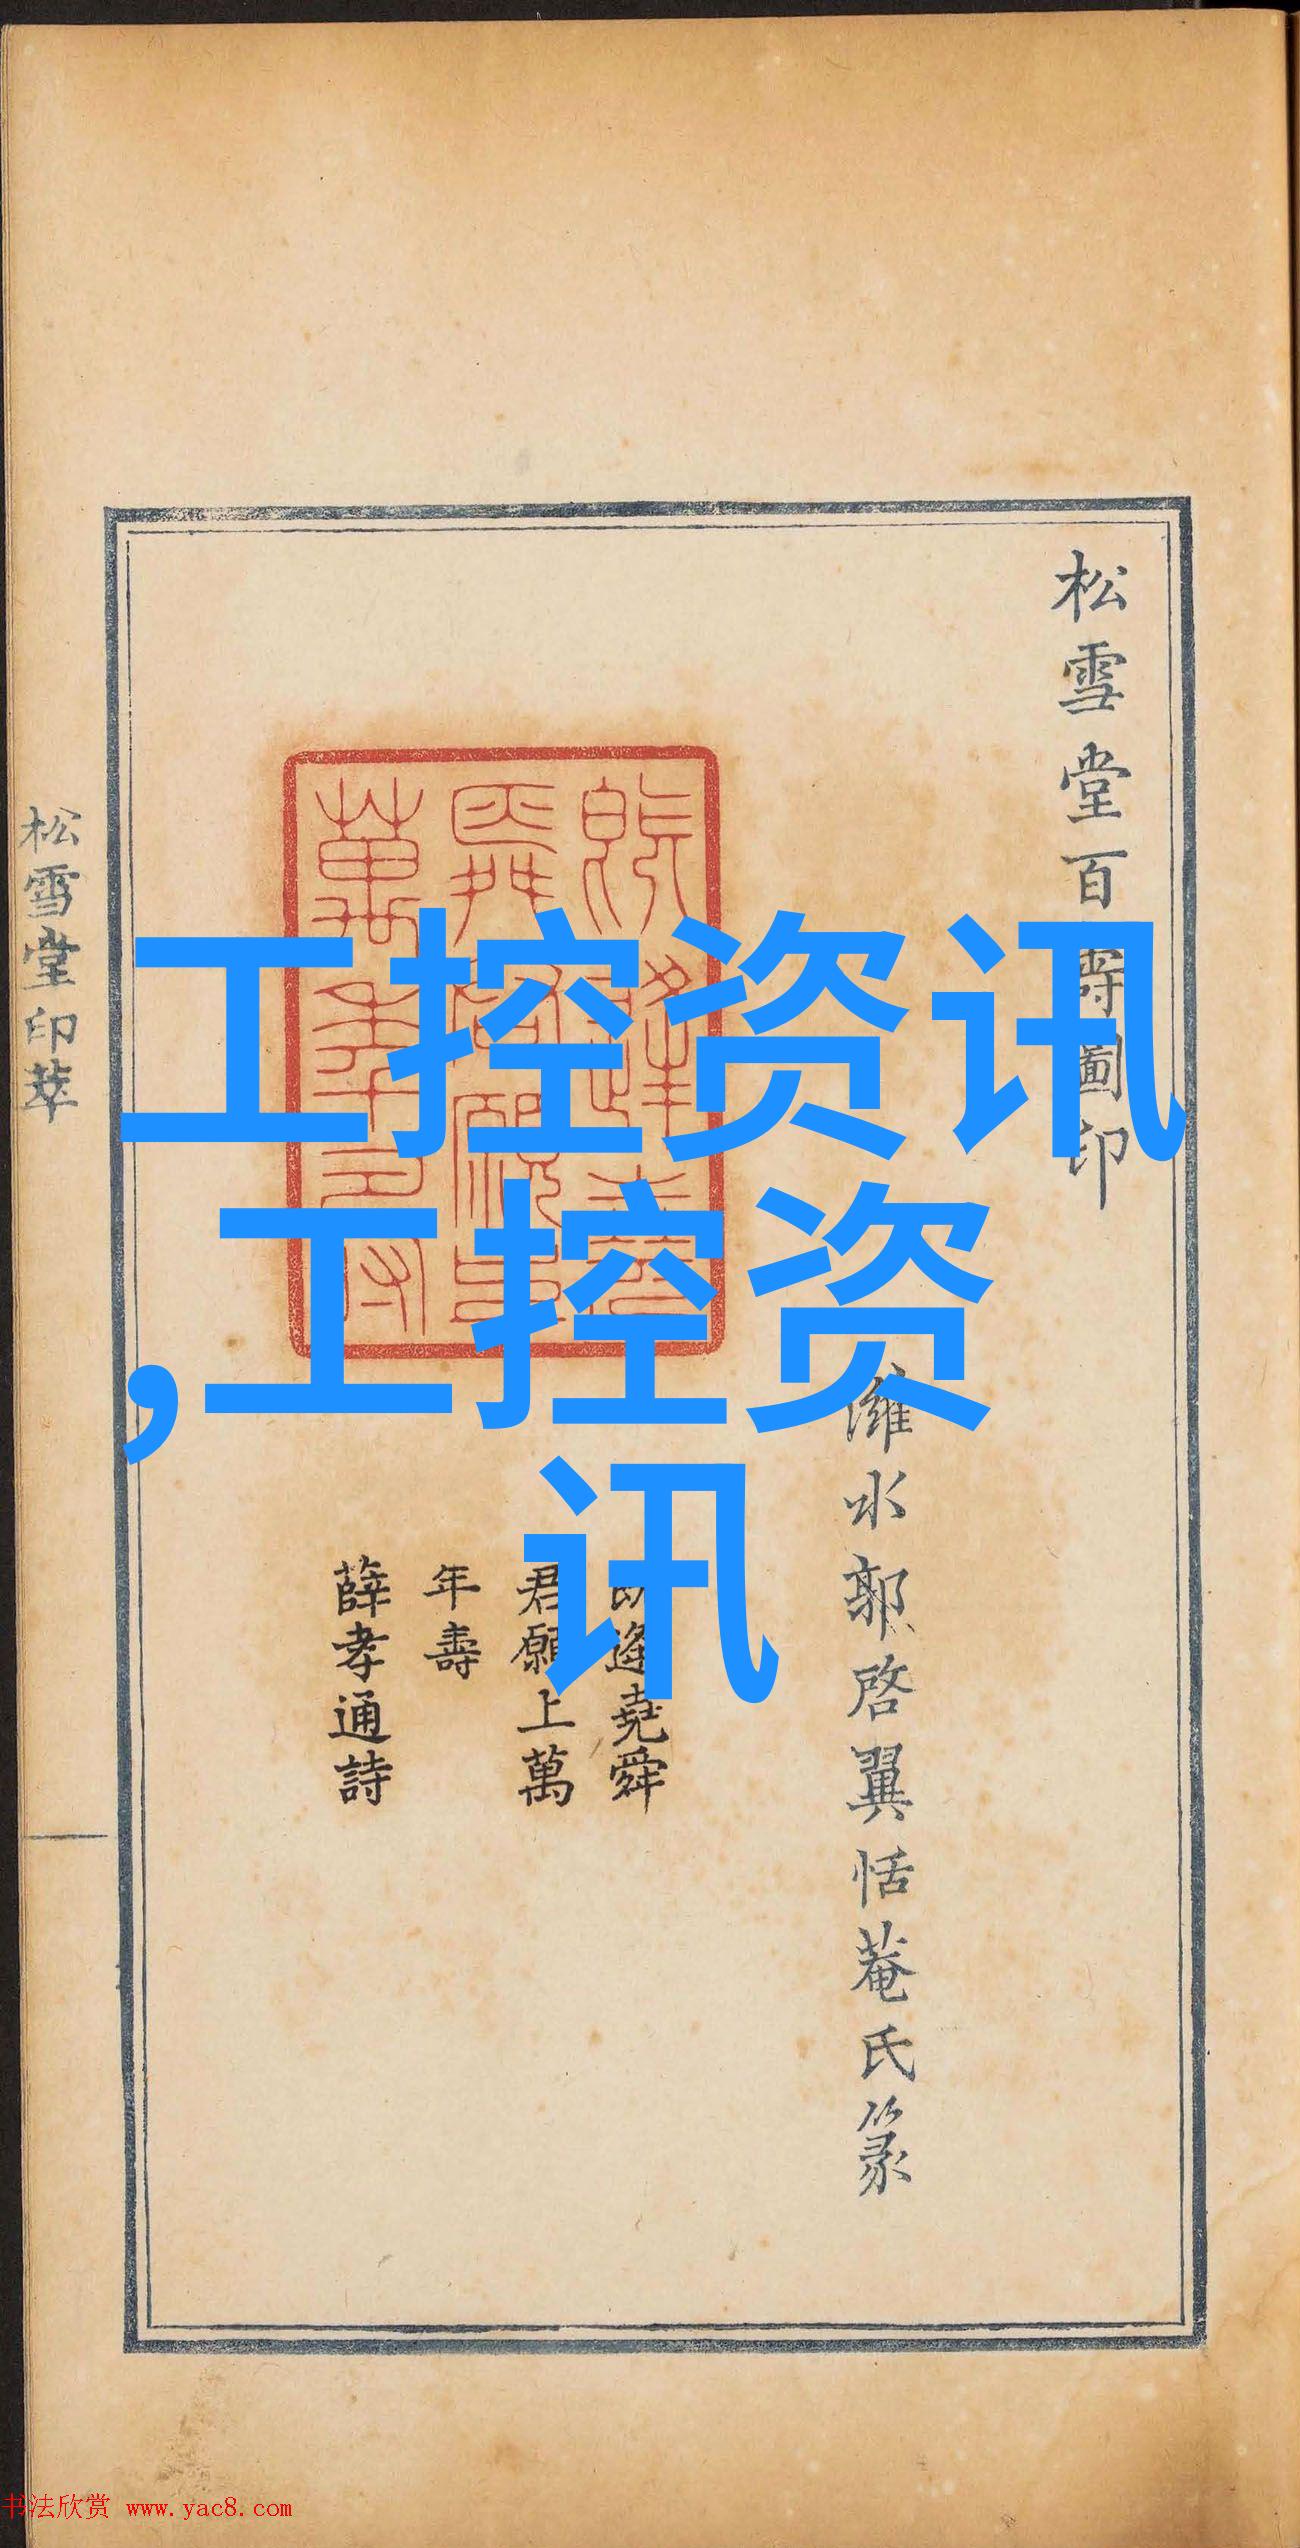 工控资讯
,工控资
讯
松雪堂百壽圖印
濰水郭啓翼恬菴氏篆
既逢堯舜
君願上萬
年壽
薛孝通詩
松雪堂印萃
书法欣赏 www.yac8.com